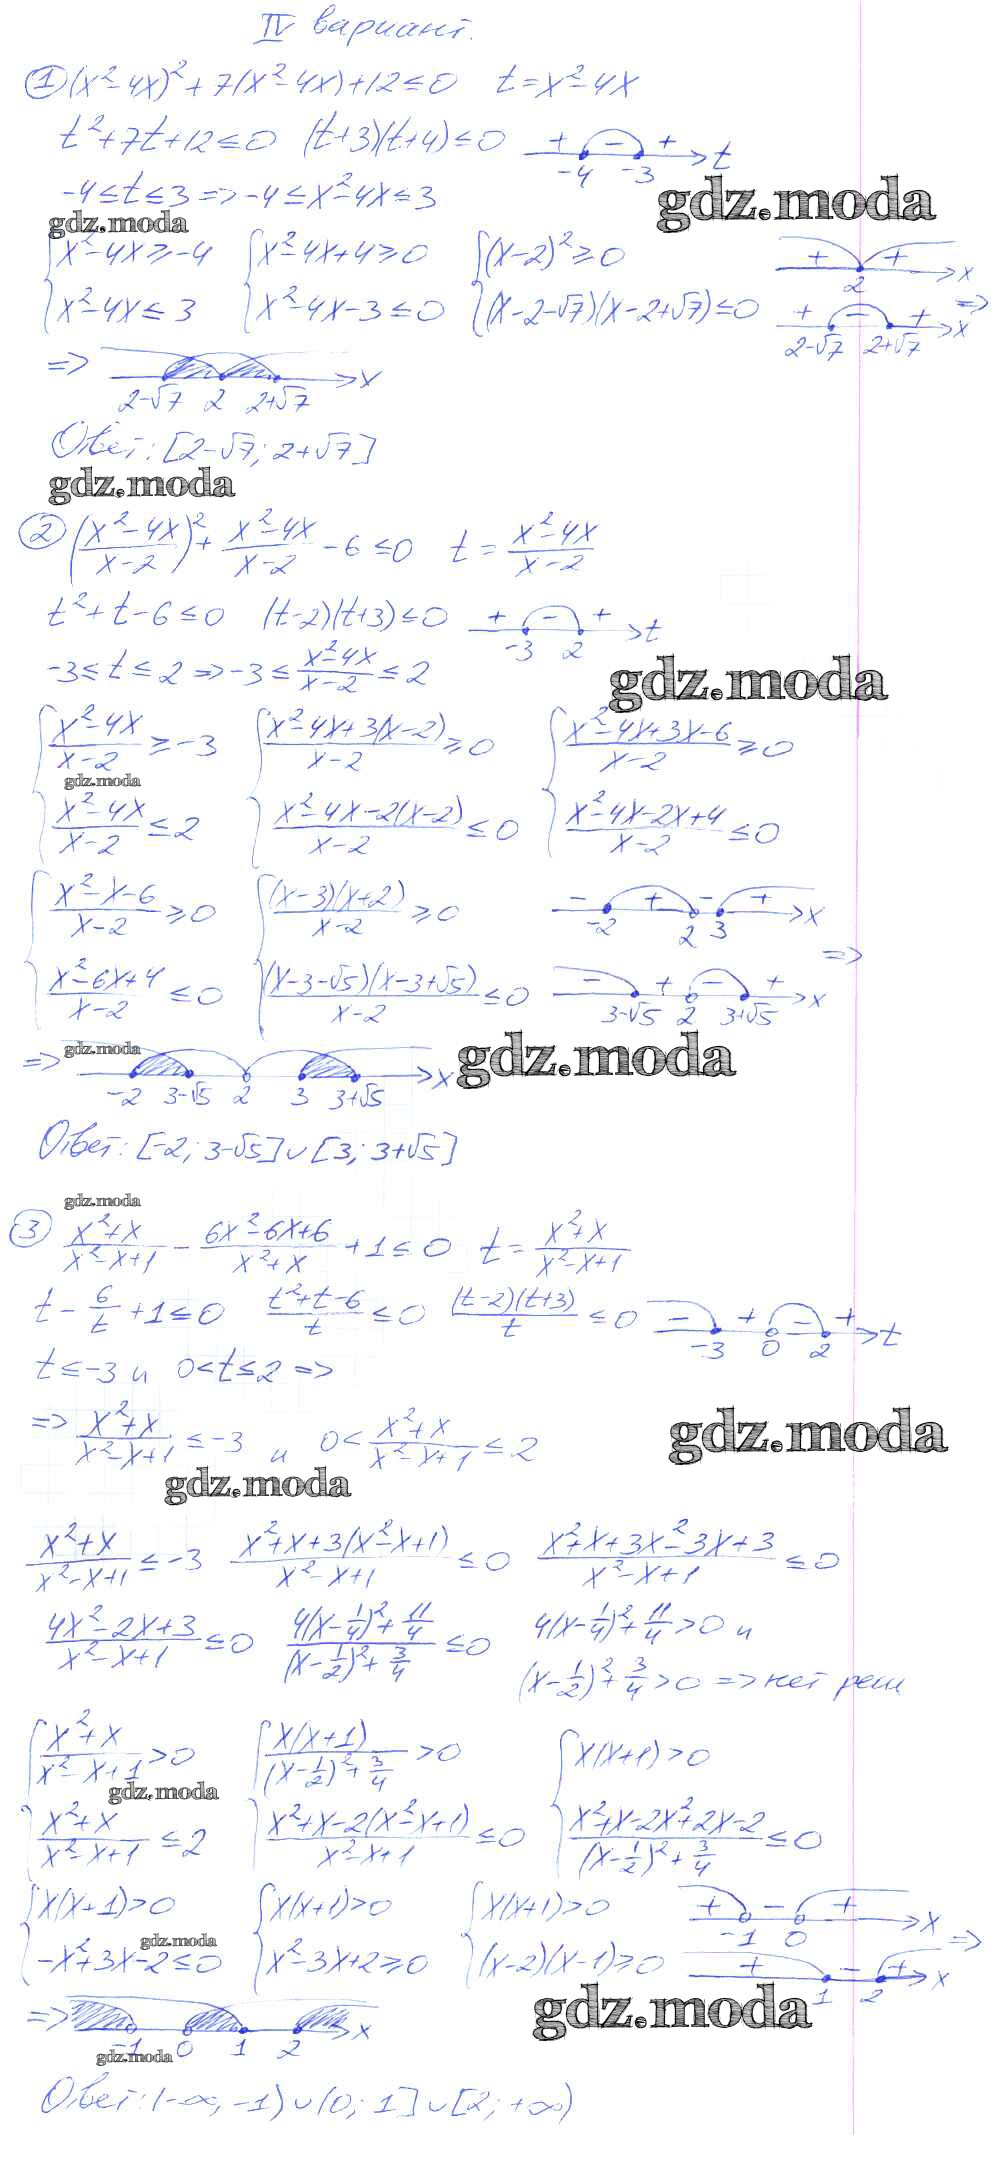 IV вариант.
① (x²-4x)²+7(x²-4x)+12≤0 t=x²-4x
t²+7t+12≤0 (t+3)(t+4)≤0 + - + t -4 -3
-4≤t≤3 => -4≤x²-4x≤3
gdz.moda
gdz.moda
{x²-4x≥-4 {x²-4x+4≥0 {(x-2)²≥0 + + x 2
{x²-4x≤3 {x²-4x-3≤0 {(x-2-√7)(x-2+√7)≤0 + - + x 2-√7 2+√7 =>
=> 2-√7 2 2+√7 x
Ответ: [2-√7; 2+√7]
gdz.moda
② ((x²-4x)/(x-2))² + (x²-4x)/(x-2) - 6≤0 t = (x²-4x)/(x-2)
t²+t-6≤0 (t-2)(t+3)≤0 + - + t -3 2
-3≤t≤2 => -3≤(x²-4x)/(x-2)≤2
gdz.moda
{(x²-4x)/(x-2)≥-3 {(x²-4x+3(x-2))/(x-2)≥0 {(x²-4x+3x-6)/(x-2)≥0
gdz.moda
{(x²-4x)/(x-2)≤2 {(x²-4x-2(x-2))/(x-2)≤0 {(x²-4x-2x+4)/(x-2)≤0
{(x²-x-6)/(x-2)≥0 {((x-3)(x+2))/(x-2)≥0 - + - + x -2 2 3
{(x²-6x+4)/(x-2)≤0 {((x-3-√5)(x-3+√5))/(x-2)≤0 - + - + x 3-√5 2 3+√5 =>
gdz.moda
gdz.moda
=> -2 3-√5 2 3 3+√5 x
Ответ: [-2; 3-√5]∪[3; 3+√5]
gdz.moda
③ (x²+x)/(x²-x+1) - (6x²-6x+6)/(x²+x) + 1≤0 t = (x²+x)/(x²-x+1)
t - 6/t + 1≤0 (t²+t-6)/t≤0 ((t-2)(t+3))/t≤0 - + - + t -3 0 2
t≤-3 и 0<t≤2 =>
=> (x²+x)/(x²-x+1)≤-3 и 0<(x²+x)/(x²-x+1)≤2
gdz.moda
gdz.moda
(x²+x)/(x²-x+1)≤-3 (x²+x+3(x²-x+1))/(x²-x+1)≤0 (x²+x+3x²-3x+3)/(x²-x+1)≤0
(4x²-2x+3)/(x²-x+1)≤0 (4(x-1/4)²+11/4)/((x-1/2)²+3/4)≤0 4(x-1/4)²+11/4>0 и
(x-1/2)²+3/4>0 => нет реш
{(x²+x)/(x²-x+1)>0 {(x(x+1))/((x-1/2)²+3/4)>0 {x(x+1)>0
gdz.moda
{(x²+x)/(x²-x+1)≤2 {(x²+x-2(x²-x+1))/(x²-x+1)≤0 {(x²+x-2x²+2x-2)/((x-1/2)²+3/4)≤0
{x(x+1)>0 {x(x+1)>0 {x(x+1)>0 + - + x -1 0
gdz.moda
{-x²+3x-2≤0 {x²-3x+2≥0 {(x-2)(x-1)≥0 + - + x 1 2 =>
gdz.moda
=> -1 0 1 2 x
gdz.moda
Ответ: (-∞, -1)∪(0; 1]∪[2; +∞)